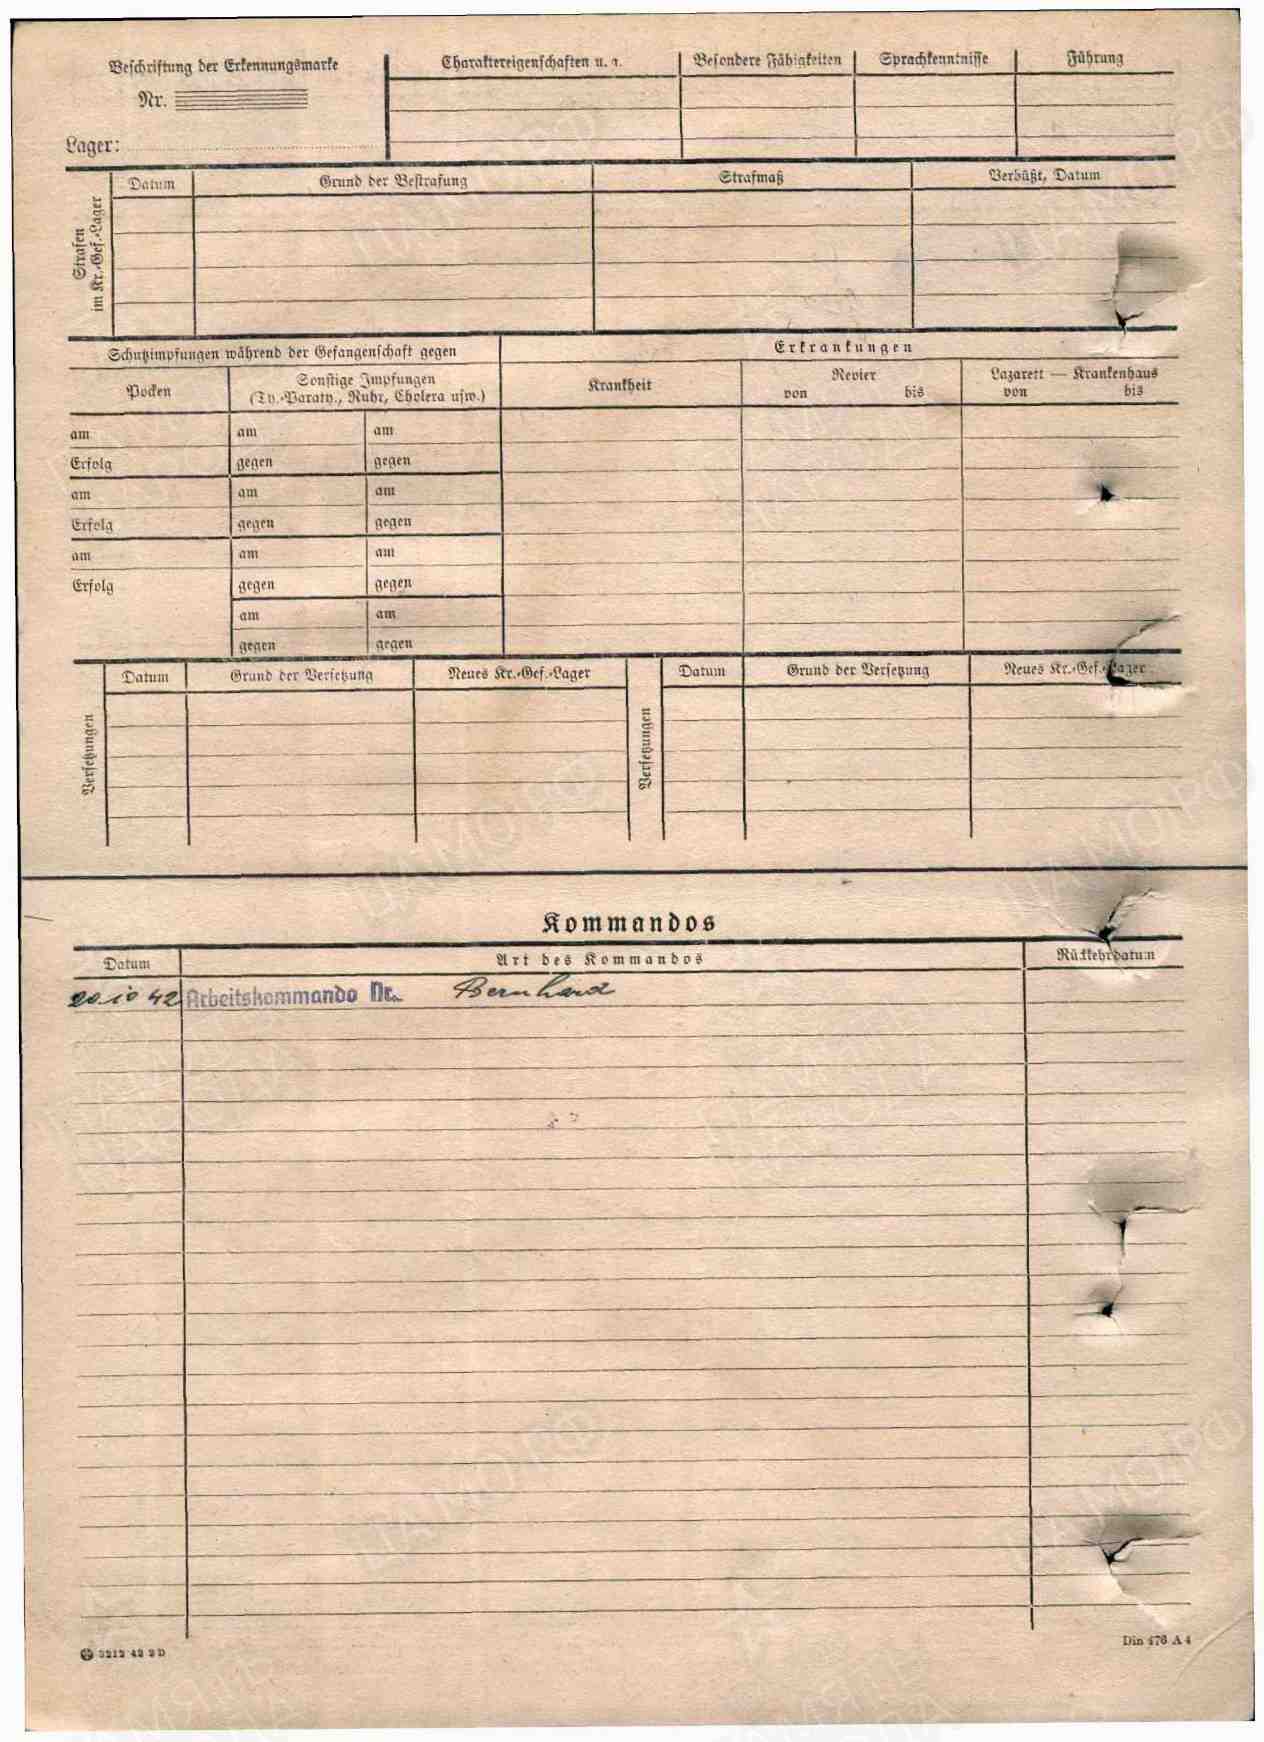 Beschriftung der Erkennungsmarke
Nr.
Lager:
Charaktereigenschaften u. a. Besondere Fähigkeiten Sprachkenntnisse Führung
Strafen im Kr.-Gef.-Lager
Datum Grund der Bestrafung Strafmaß Verbüßt, Datum
Schutzimpfungen während der Gefangenschaft gegen Erkrankungen
Pocken Sonstige Impfungen Krankheit Revier Lazarett — Krankenhaus
(Ty.-Paraty., Ruhr, Cholera usw.) von bis von bis
am am am
Erfolg gegen gegen
am am am
Erfolg gegen gegen
am am am
Erfolg gegen gegen
am am
gegen gegen
Versetzungen Datum Grund der Versetzung Neues Kr.-Gef.-Lager Versetzungen Datum Grund der Versetzung Neues Kr.-Gef.-Lager
Kommandos
Datum Art des Kommandos Rückkehrdatum
20.10 42 Arbeitskommando Nr. Bernhard
3212 42 2 D Din 476 A 4
ЦАМО РФ